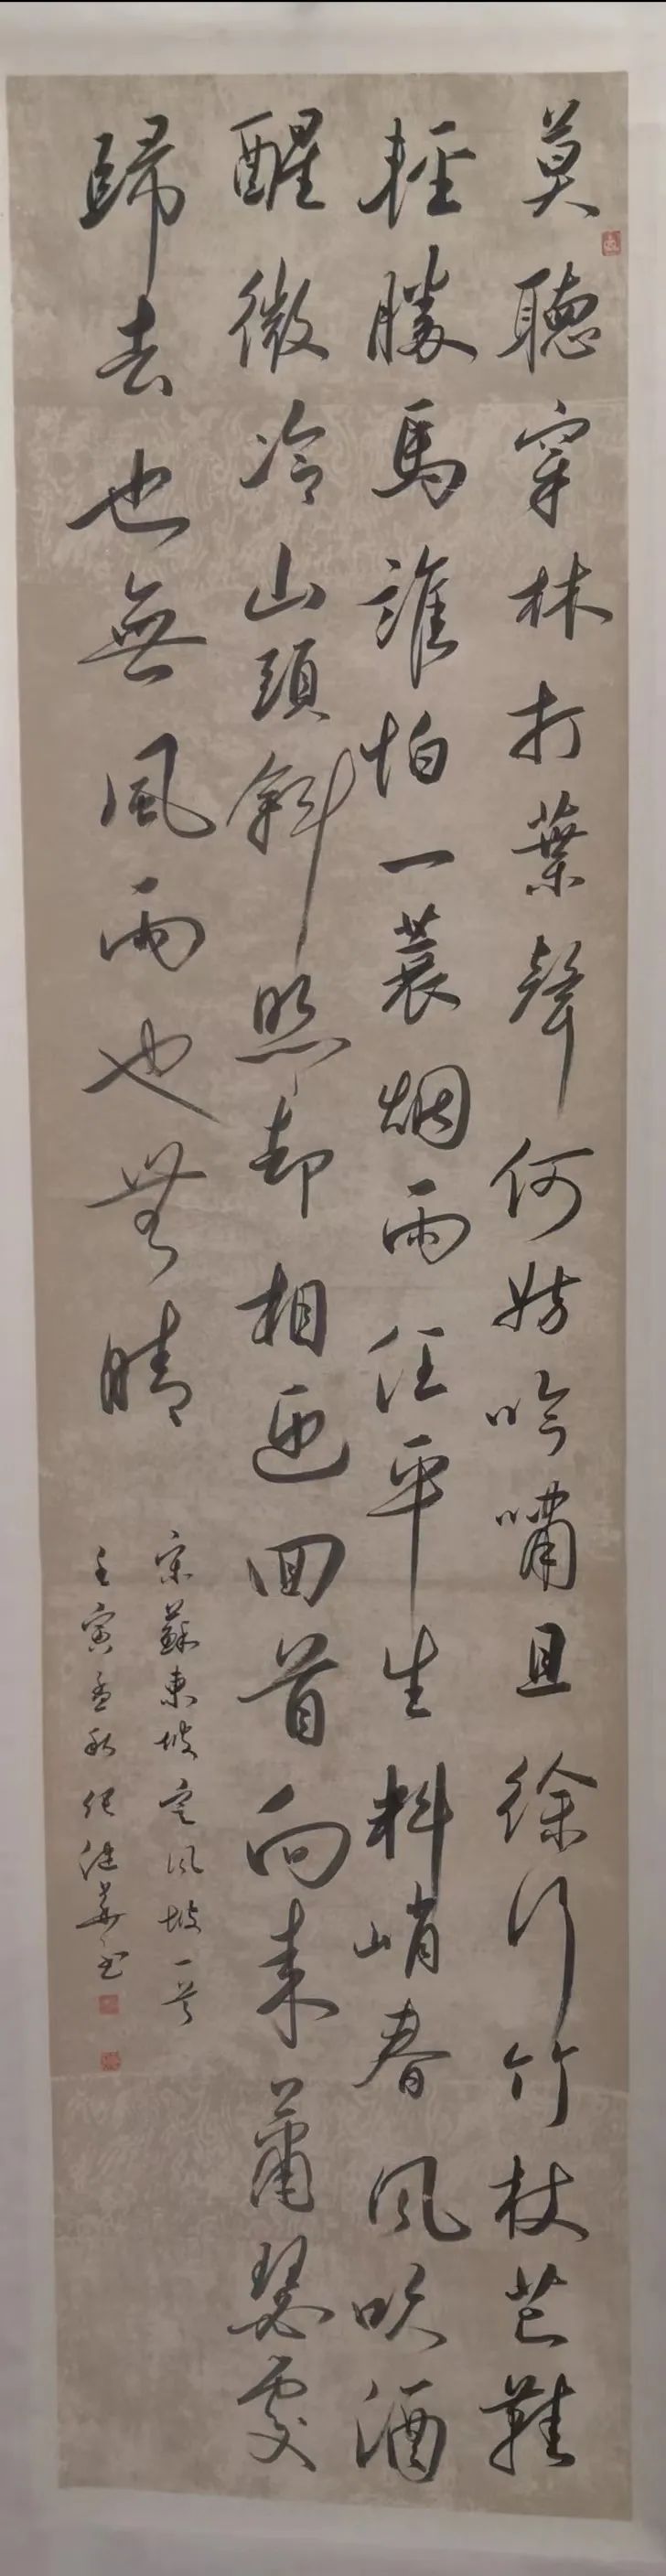 莫聽穿林打葉聲何妨吟嘯且徐行竹杖芒鞋
輕勝馬誰怕一蓑烟雨任平生料峭春風吹酒
醒微冷山頭斜照却相迎回首向来蕭瑟處
歸去也無風雨也無晴
宋蘇東坡定风坡一首
壬寅孟秋